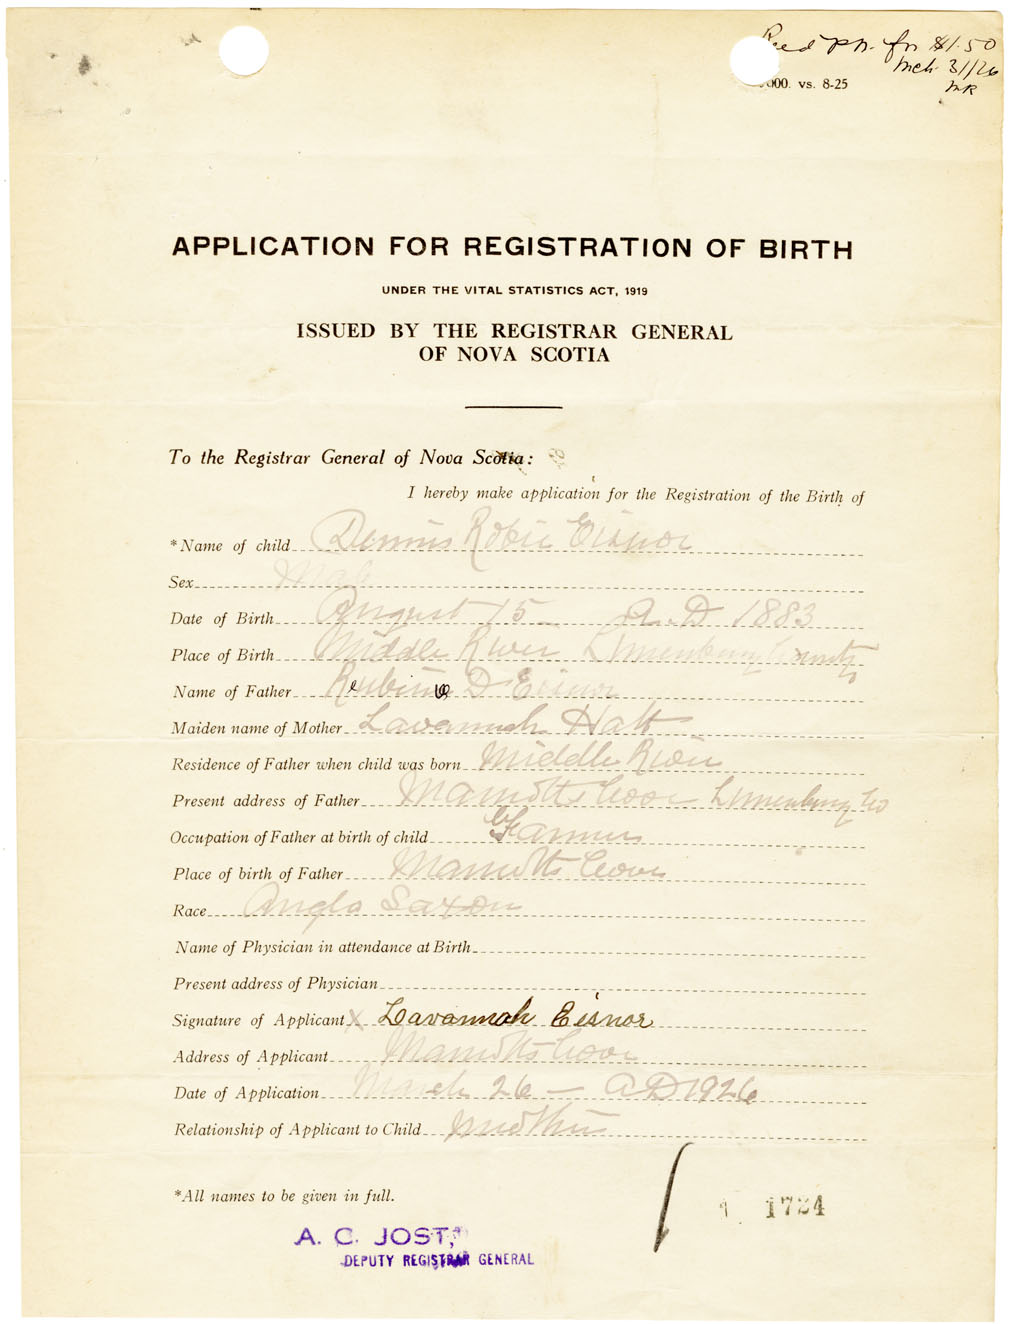 Recd P.N. for $1.50
Mch 31/26
MR
000. vs. 8-25
APPLICATION FOR REGISTRATION OF BIRTH
UNDER THE VITAL STATISTICS ACT, 1919
ISSUED BY THE REGISTRAR GENERAL
OF NOVA SCOTIA
To the Registrar General of Nova Scotia:
I hereby make application for the Registration of the Birth of
*Name of child Dennis Robie Eisnor
Sex Male
Date of Birth August 15 A.D 1883
Place of Birth Middle River Lunenburg County
Name of Father D Eisnor
Maiden name of Mother Lavannah Hatt
Residence of Father when child was born Middle River
Present address of Father Marriotts Cove Lunenburg Co
Occupation of Father at birth of child Farmer
Place of birth of Father Marriotts Cove
Race Anglo Saxon
Name of Physician in attendance at Birth
Present address of Physician
Signature of Applicant X Lavannah Eisnor
Address of Applicant Marriotts Cove
Date of Application March 26 — AD 1926
Relationship of Applicant to Child Mother
*All names to be given in full.
1 1724
A. C. JOST,
DEPUTY REGISTRAR GENERAL